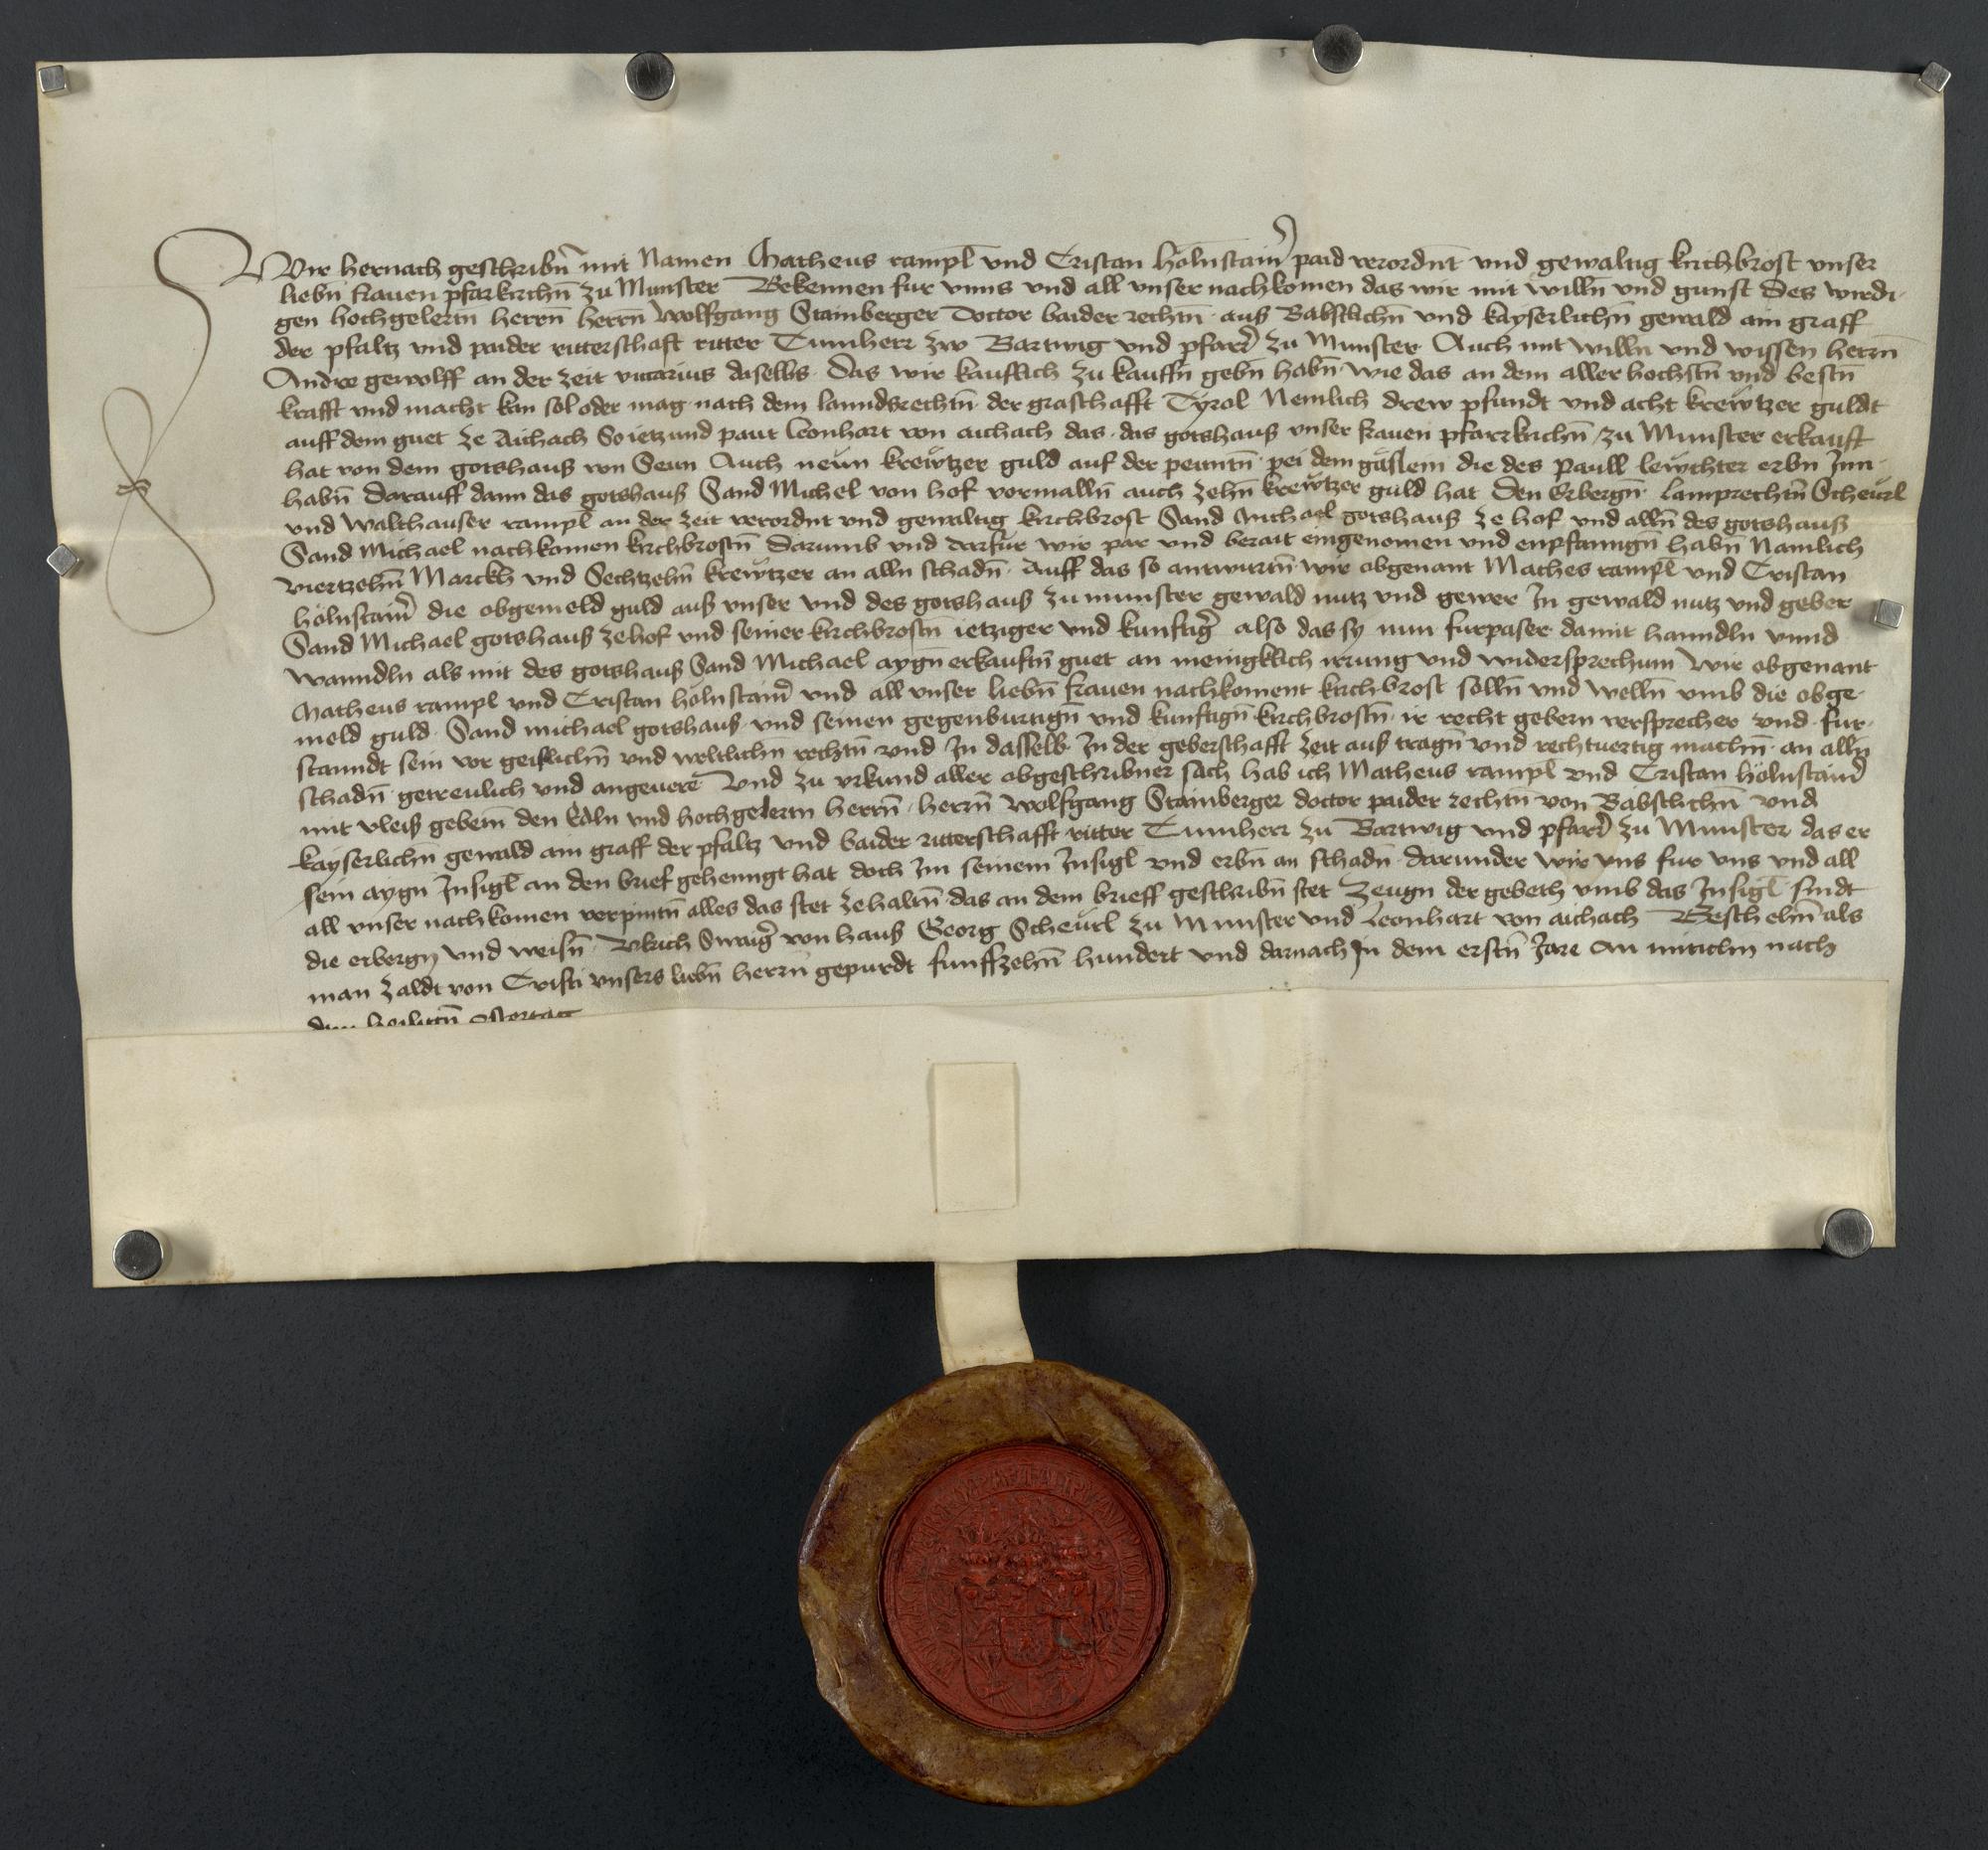 Wir hernach geschribn̄ mit Namen Matheus rampl und Cristan hölnstain̄ paid verordnt und gewaltig kirchbrost unser
liebn̄ frauen pfarkirchn̄ zu Munster Bekennen fur unns und all unser nachkomen das wir mit willn̄ und gunst des wirdi-
gen hochgelertn̄ herrn̄ herrn̄ Wolfgang Stainberger Doctor baider rechtn̄ auß Babstlichn̄ und kayserlichn̄ gewald ain graff
der pfaltz und paider ritterschaft ritter Tumherr zw Bartwig und pfarr̄ zu Munster Auch mit willn̄ und wissen herrn̄
Andre gewolff an der zeit vicarius daselbs das wir kauflich zu kauffn̄ gebn̄ habn̄ wie das an dem aller hochstn̄ und bestn̄
krafft und macht kan sol oder mag nach dem lanndsrechtn̄ der graschafft Tyrol Nemlich drew pfundt und acht krewtzer guldt
auff dem guet ze Aichach So ietzund paut leonhart von aichach das das gotshauß unser frauen pfarrkirchn̄ zu Munster erkauft
hat von dem gotshauß von Seun Auch neun krewtzer guld auf der peuntn̄ pei dem gäslein die des paull lewchter erbn̄ Inn-
habn̄ darauff dann das gotshauß Sand Michel von hof vormalln̄ auch zehn̄ krewtzer guld hat den Erbergn̄ lamprechtn̄ Scheurl
und Walthauser rampl an der zeit verordnt und gewaltig kirchbrost Sand Michael gotshauß ze hof und alln̄ des gotshauß
Sand Michael nachkomen kirchbrostn̄ darumb und darfur wir par und berait eingenomen und enpfanngn̄ habn̄ Namlich
viertzehn̄ Marckh und Sechtzehn̄ krewtzer an alln schadn̄ Auff das so antwurtn̄ wir obgenant Mathes rampl und Cristan
hölnstain̄ die obgemeld guld auß unser und des gotshauß zu munster gewald nutz und gewer In gewald nutz und geber
Sand Michael gotshauß zehof und seiner kirchbrostn̄ ietziger und kunftigr̄ also das sy nun furpaser damit hanndln unnd
wanndln als mit des gotshauß Sand Michael aygn̄ erkauftn̄ guet an menigklich irrung und widersprechum Wir obgenant
Matheus rampl und Cristan hölnstain̄ und all unser liebn̄ frauen nachkoment kirchbrost solln̄ und welln̄ umb die obge-
meld guld Sand michael gotshauß und seinen gegenburtign̄ und kunftign̄ kirchbrostn̄ ir recht gebern versprecher und fur-
stanndt sein vor geistlichn̄ und weltlichn rechtn̄ und In dasselb In der geberschafft zeit auß tragn̄ und rechtuertig machn̄ an alln̄
schadn̄ getreulich und angeuere Und zu urkund aller obgeschribner sach hab ich Matheus rampl und Cristan hölnstain̄
mit vleiß gebetn̄ den Edln und hochgelertn herrn̄ herrn̄ Wolfgang Stainberger doctor paider rechtn̄ von Babstlichn̄ und
kayserlichn̄ gewald ain graff der pfaltz und baider ritterschafft ritter Tumherr zu Bartwig und pfarr̄ zu Munster das er
sein aygn Insigl an den brief gehenngt hat doch Im seinem Insigl und erbn̄ an schadn̄ darunder wir uns fur uns und all
all unser nachkomen verpintn̄ alles das stet zehaltn̄ das an dem brieff geschribn̄ stet Zeugn der gebeth umb das Insigl sindt
die erbergn̄ und weisn̄ Ulrich Swaigr̄ von hauß Georg Scheurl zu Munster und Leonhart von aichach Beschehn̄ als
man zaldt von Cristi unsers liebn̄ herrn̄ gepurdt funffzehn̄ hundert und darnach In dem erstn̄ Jare An mitichn nach
dem heilign̄ ostertag